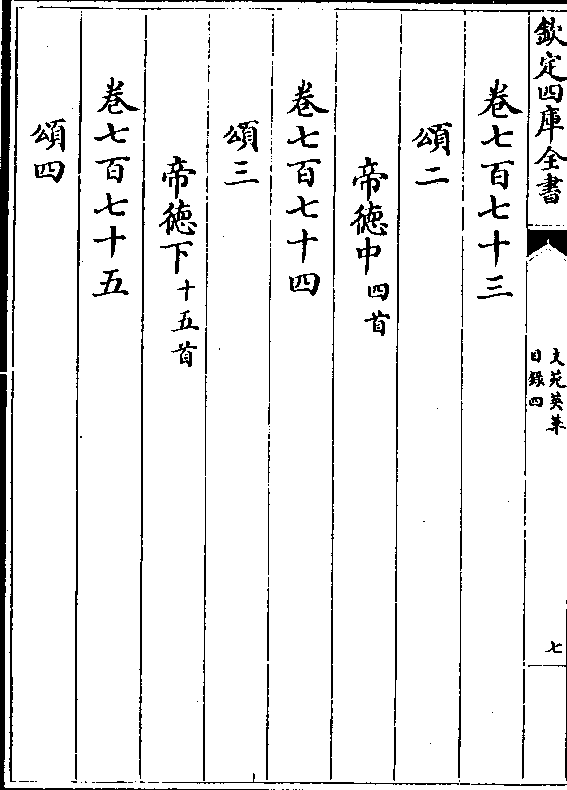 欽定四庫全書
文苑英華
目錄四
七
卷七百七十三
頌二
帝德中四首
卷七百七十四
頌三
帝德下十五首
卷七百七十五
頌四